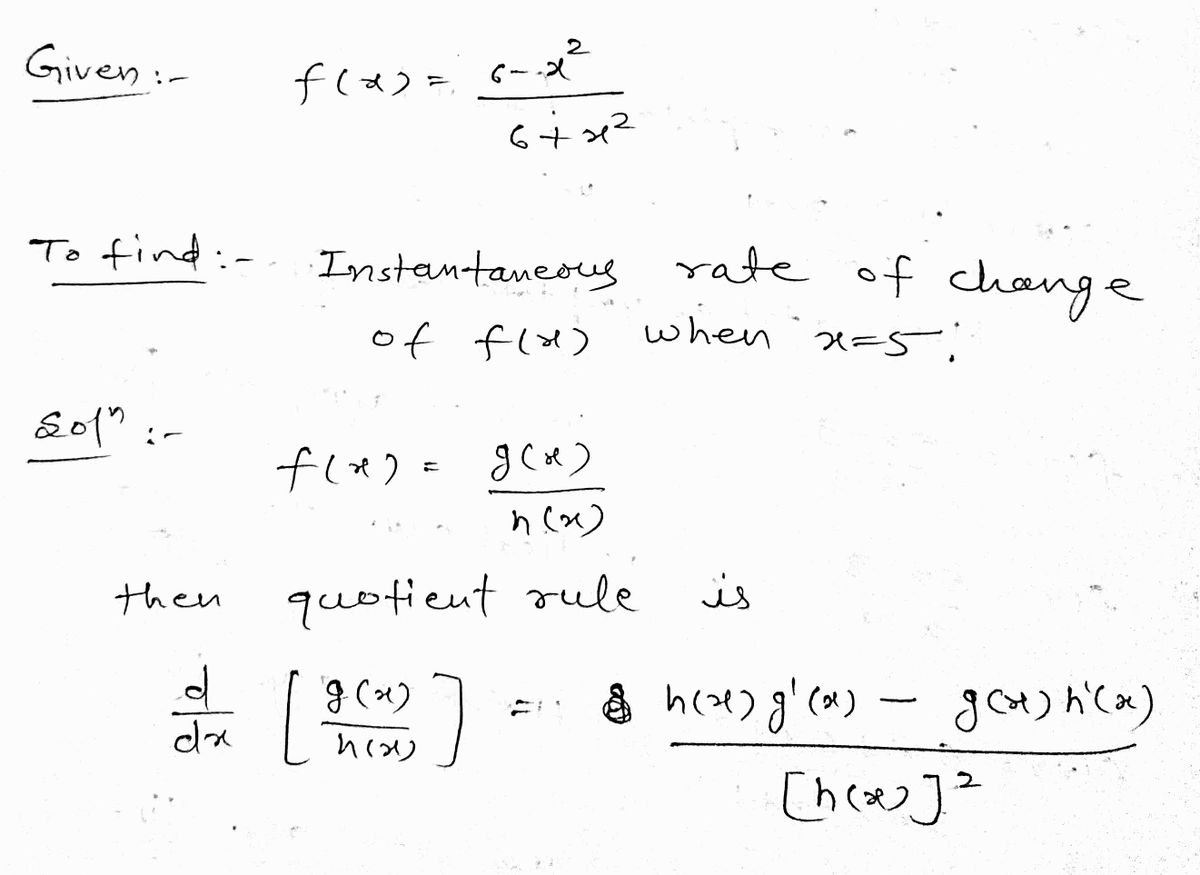 Given :- f(x) = (6 - x²) / (6 + x²)
To find :- Instantaneous rate of change
of f(x) when x=5.
Solⁿ :-
f(x) = g(x) / h(x)
then quotient rule is
d/dx [g(x) / h(x)] = (h(x) g'(x) - g(x) h'(x)) / [h(x)]²